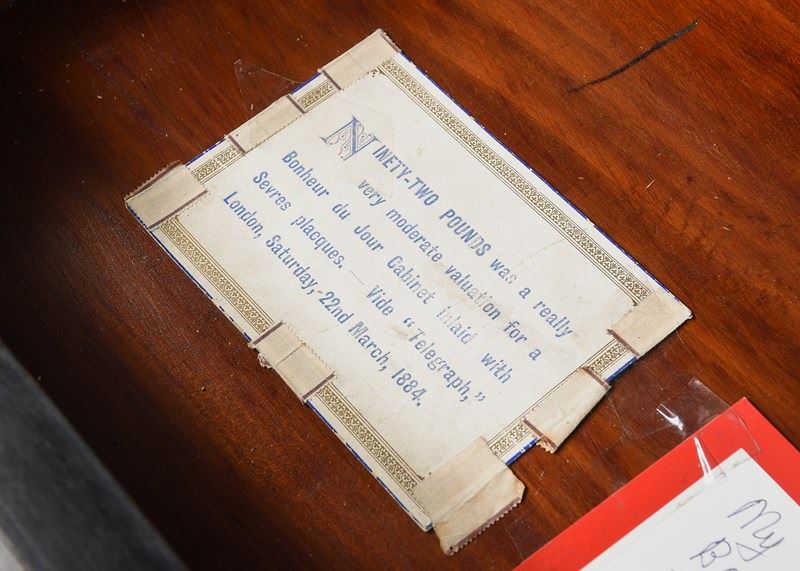 NINETY-TWO POUNDS was a really
very moderate valuation for a
Bonheur du Jour Cabinet inlaid with
Sevres placques. — Vide "Telegraph,"
London, Saturday, 22nd March, 1884.
My